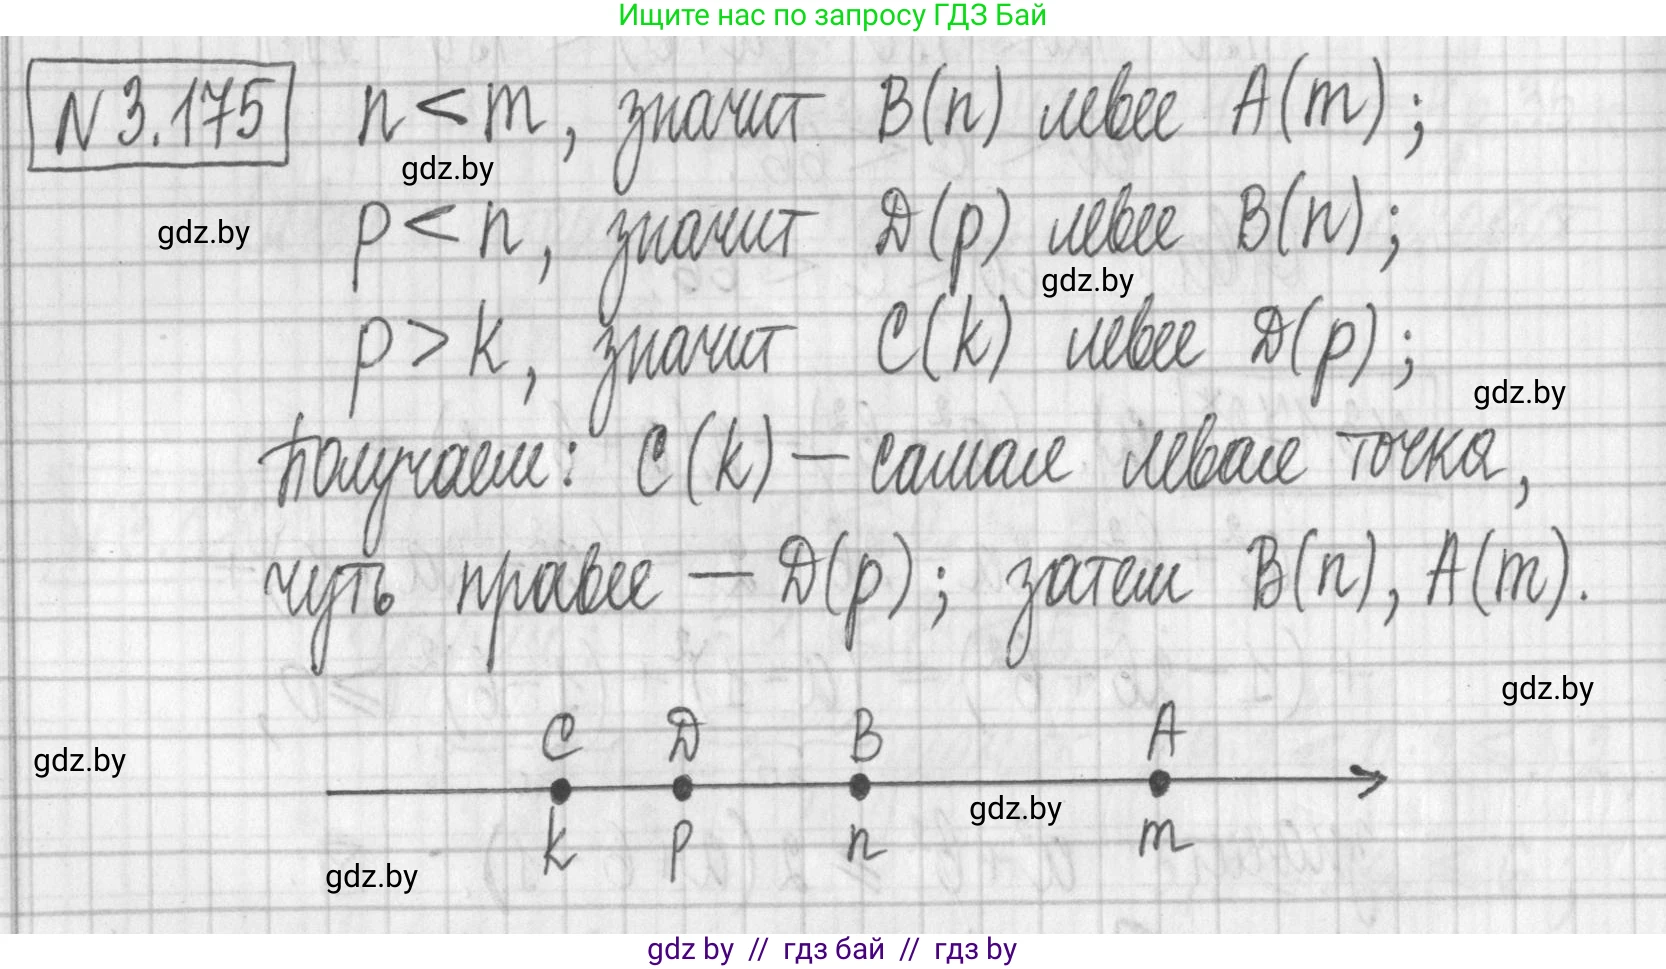 Ищите нас по запросу ГДЗ Бай
N 3.175 n < m, значит B(n) левее A(m);
gdz.by
gdz.by p < n, значит D(p) левее B(n);
gdz.by
p > k, значит C(k) левее D(p);
gdz.by
Получаем: C(k) – самая левая точка,
чуть правее – D(p); затем B(n), A(m).
gdz.by
C D B A
gdz.by
gdz.by
k p n m
gdz.by
gdz by // гдз бай // гдз by